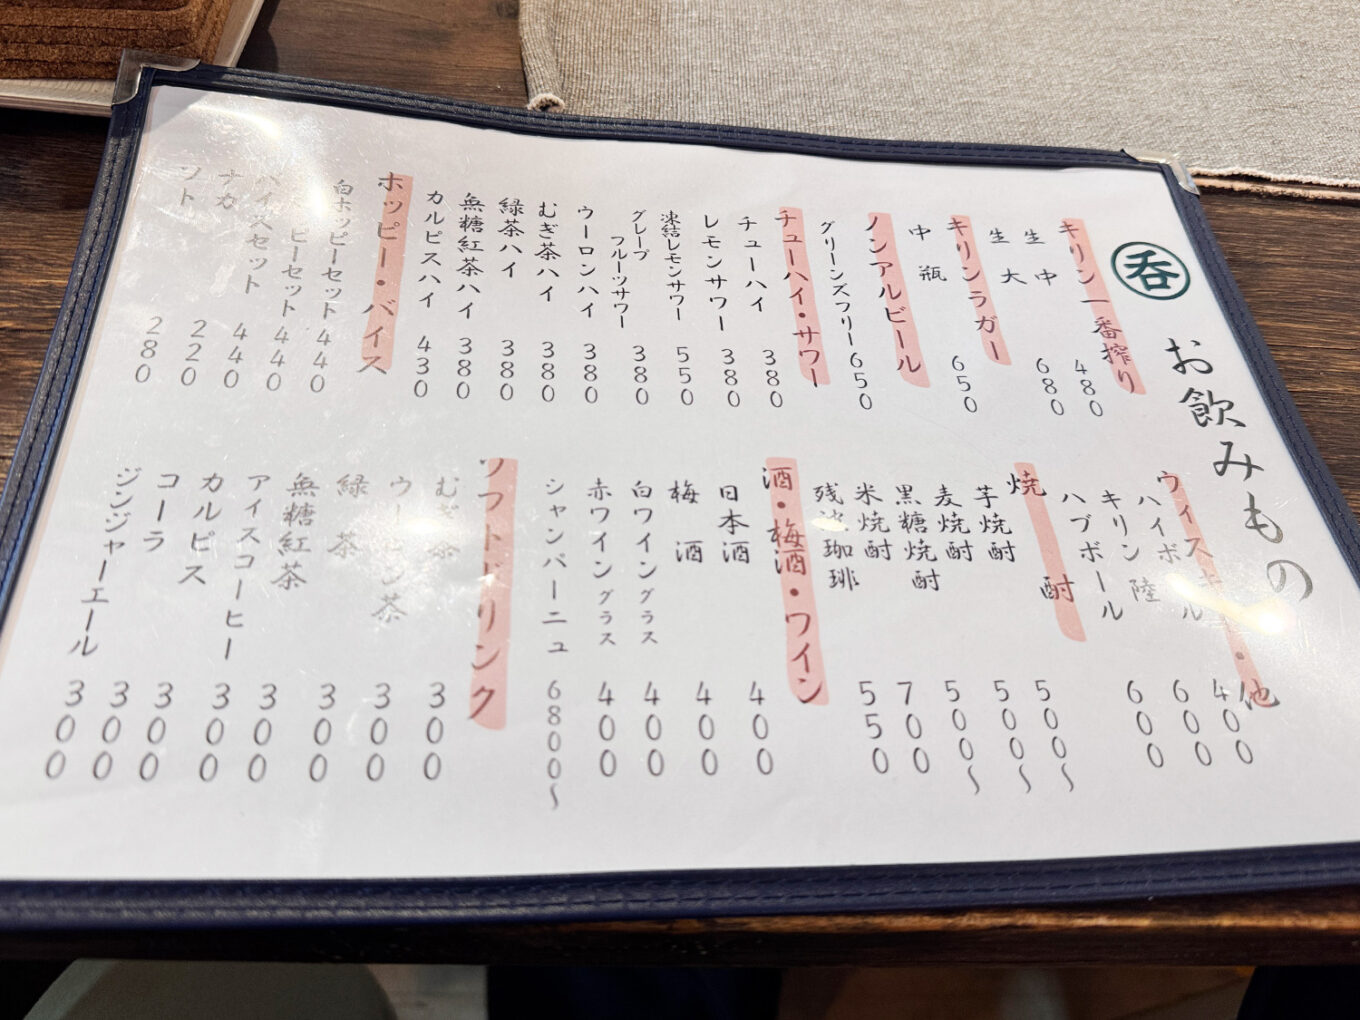 呑
お飲みもの
キリン一番搾り
生中 480
生大 680
キリンラガー
中瓶 650
ノンアルビール
グリーンズフリー 650
チューハイ・サワー
チューハイ 380
レモンサワー 380
凍結レモンサワー 550
グレープフルーツサワー 380
ウーロンハイ 380
むぎ茶ハイ 380
緑茶ハイ 380
無糖紅茶ハイ 380
カルピスハイ 430
ホッピー・バイス
白ホッピーセット 440
ピーセット 440
バイスセット 440
ナカ 220
ソト 280
ウィスキー・他
ハイボール 400
キリン陸 600
ハブボール 600
焼酎
芋焼酎 500〜
麦焼酎 500〜
黒糖焼酎 500〜
米焼酎 700
残波珈琲 550
酒・梅酒・ワイン
日本酒 400
梅酒 400
白ワイングラス 400
赤ワイングラス 400
シャンパーニュ 6800〜
ソフトドリンク
むぎ茶 300
ウーロン茶 300
緑茶 300
無糖紅茶 300
アイスコーヒー 300
カルピス 300
コーラ 300
ジンジャーエール 300